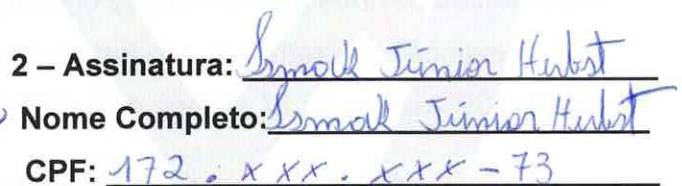 2 – Assinatura: Ismael Júnior Herbst
Nome Completo: Ismael Júnior Herbst
CPF: 172.xxx.xxx-73